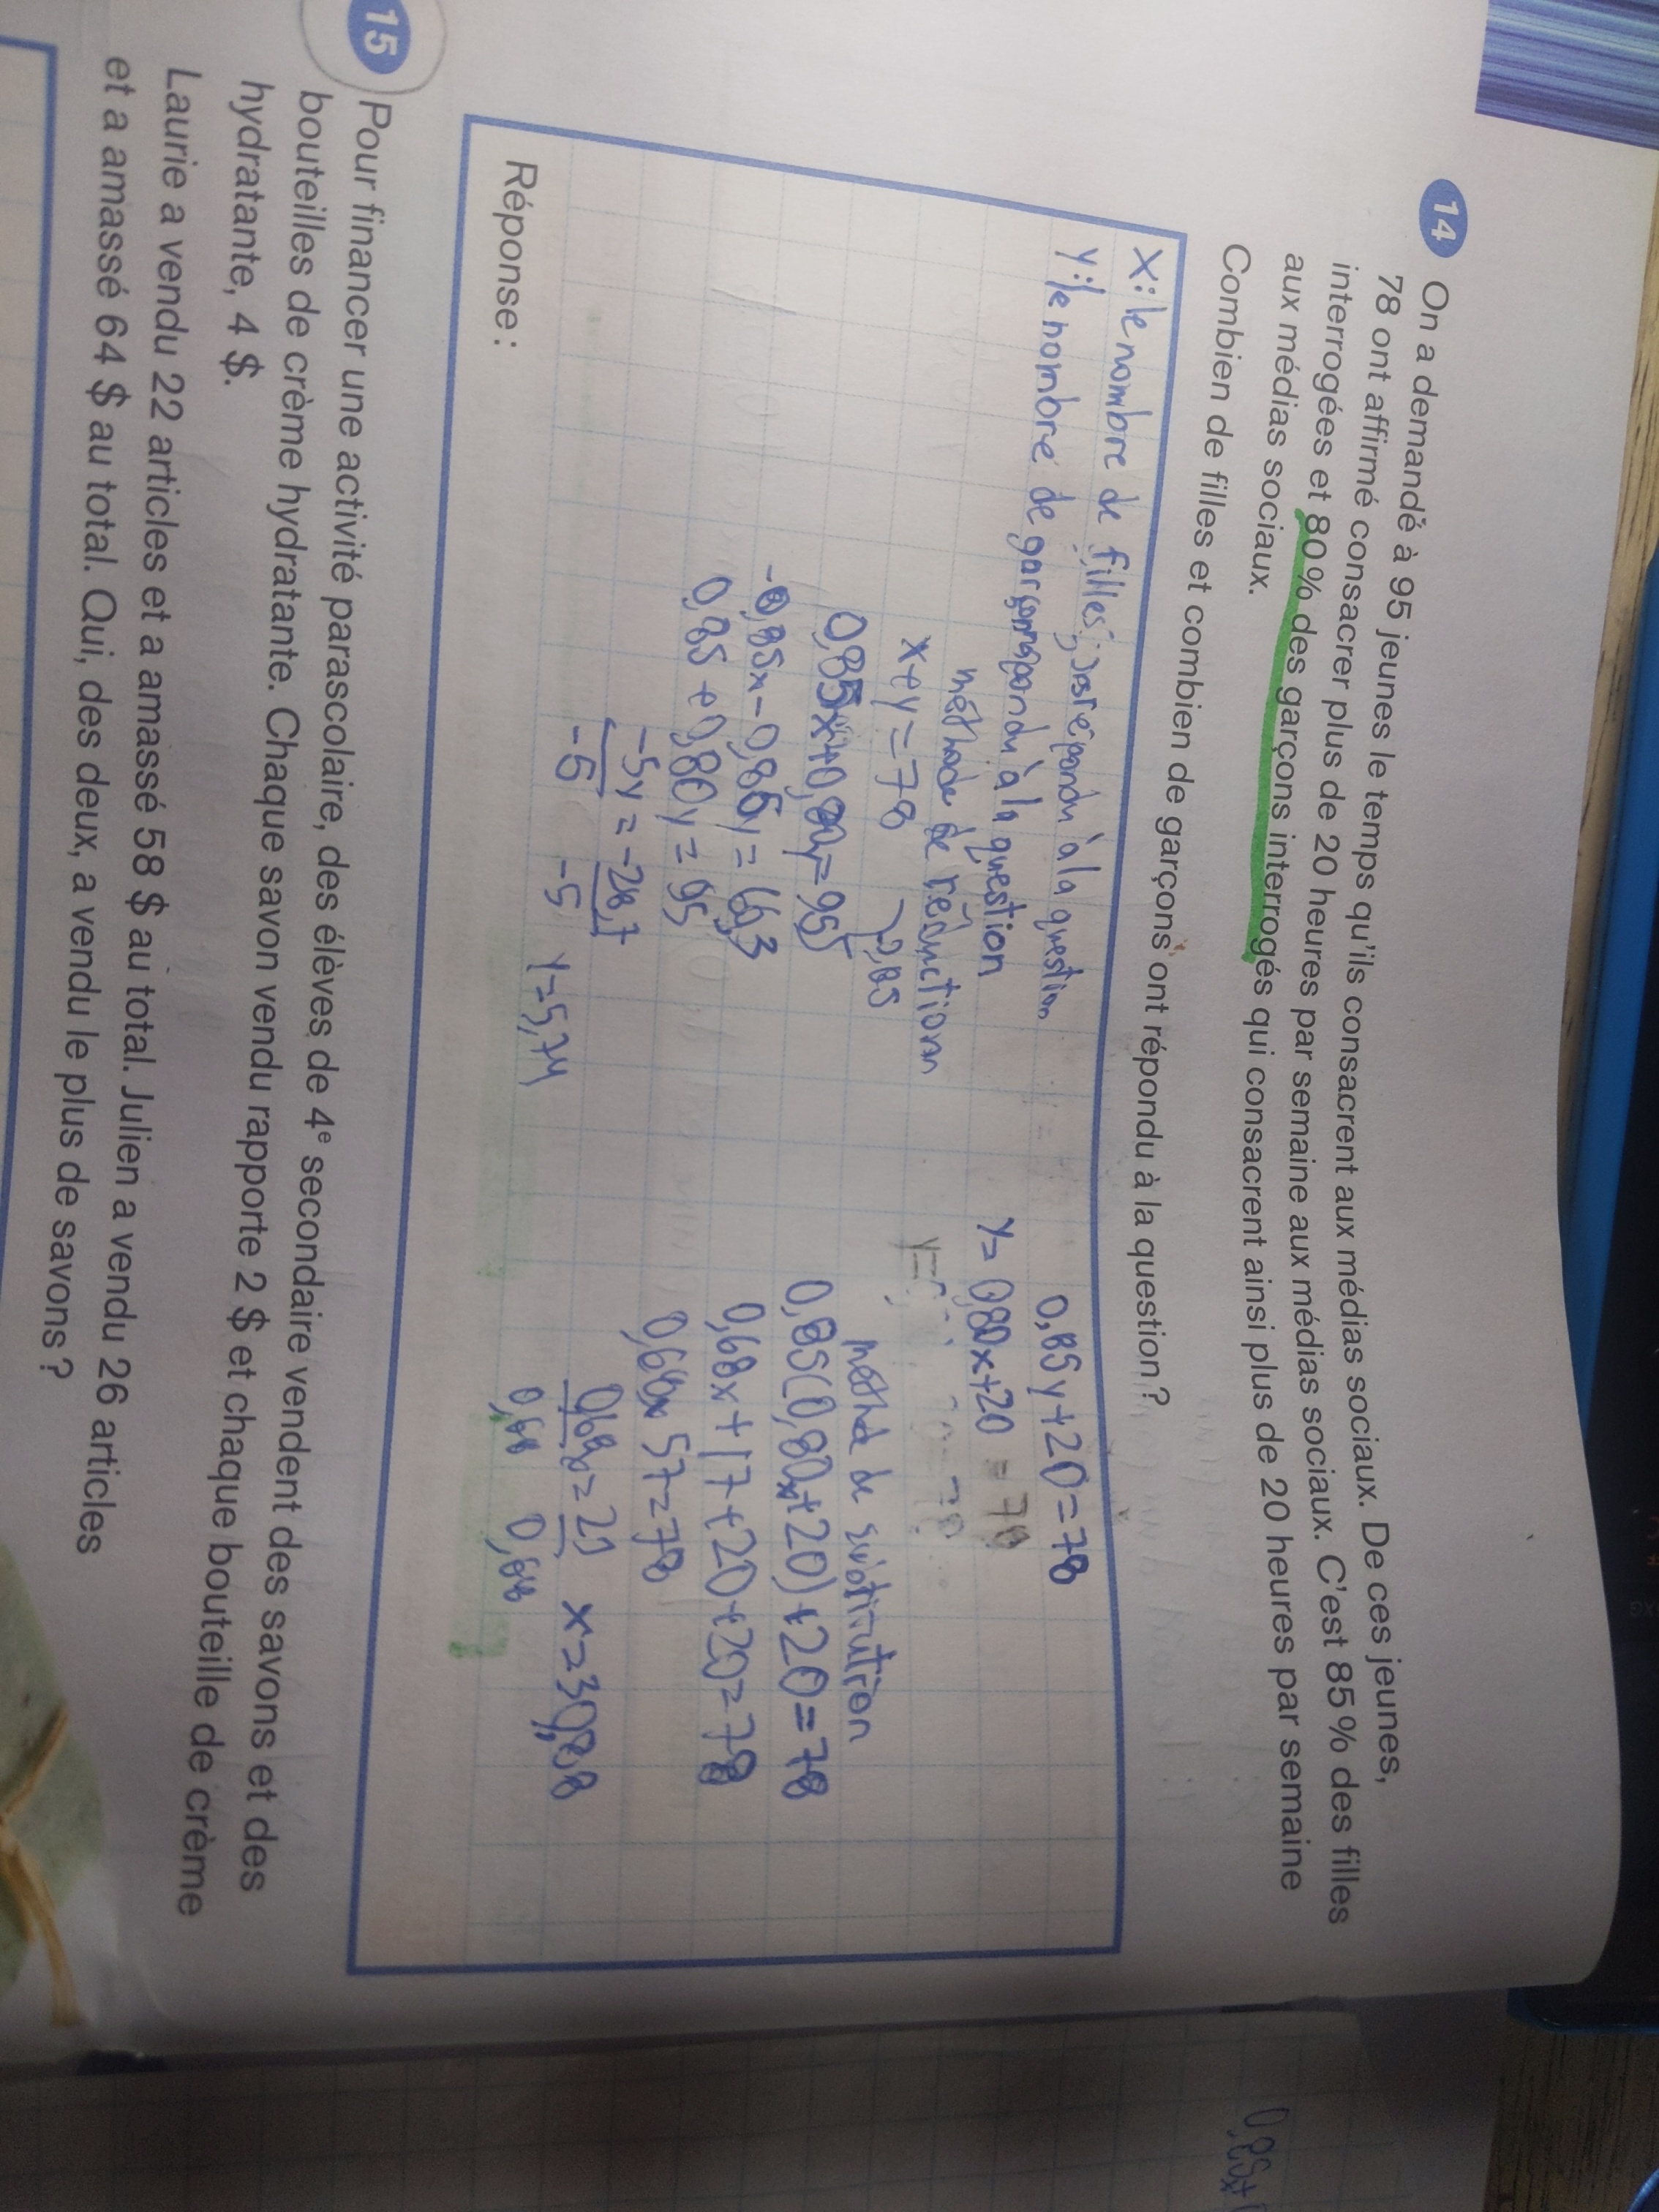 14 On a demandé à 95 jeunes le temps qu'ils consacrent aux médias sociaux. De ces jeunes,
78 ont affirmé consacrer plus de 20 heures par semaine aux médias sociaux. C'est 85 % des filles
interrogées et 80 % des garçons interrogés qui consacrent ainsi plus de 20 heures par semaine
aux médias sociaux.
Combien de filles et combien de garçons ont répondu à la question ?
x: le nombre de filles répondu à la question
y: le nombre de garçons répondu à la question
méthode de réduction
x+y=78
0,85
0,85x+0,80y=95
-0,85x-0,85y=66,3
0,85+0,80y=95
-5y=-28,7
-5 -5 y=5,74
0,85y+20=78
y=0,80x+20
=78
y=
0,85(0,80x+20)+20=78
0,68x+17+20+20=78
0,68x 57=78
0,68x=21 x=30,88
0,68 0,68
Réponse :
15 Pour financer une activité parascolaire, des élèves de 4e secondaire vendent des savons et des
bouteilles de crème hydratante. Chaque savon vendu rapporte 2 $ et chaque bouteille de crème
hydratante, 4 $.
Laurie a vendu 22 articles et a amassé 58 $ au total. Julien a vendu 26 articles
et a amassé 64 $ au total. Qui, des deux, a vendu le plus de savons ?
0,85x+